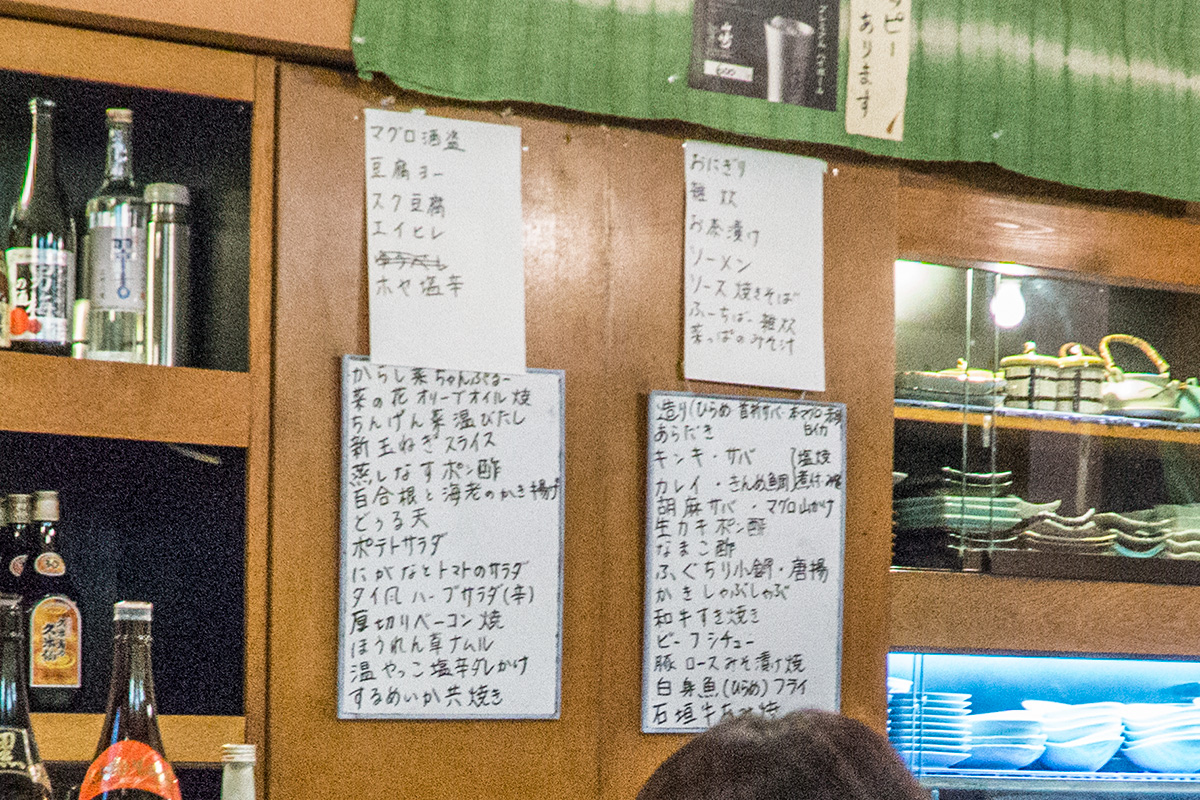 ッピー
あります
600
マグロ酒盗
豆腐ヨー
スク豆腐
エイヒレ
ホヤ塩辛
おにぎり
雑炊
お茶漬け
ソーメン
ソース焼きそば
ふーちばー雑炊
菜っぱのみそ汁
からし菜ちゃんぷるー
菜の花オリーブオイル焼
ちんげん菜温びたし
新玉ねぎスライス
蒸しなすポン酢
百合根と海老のかき揚げ
どぅる天
ポテトサラダ
にがなとトマトのサラダ
タイ風ハーブサラダ(辛)
厚切りベーコン焼
ほうれん草ナムル
温やっこ塩辛ダレかけ
するめいか共焼き
造り(ひらめ 首折サバ・本マグロ
白イカ
あらだき
キンキ・サバ
塩焼
カレイ・きんめ鯛
煮付
胡麻サバ・マグロ山かけ
生カキポン酢
なまこ酢
ふぐちり小鍋・唐揚
かきしゃぶしゃぶ
和牛すき焼き
ビーフシチュー
豚ロースみそ漬け焼
白身魚(ひらめ)フライ
石垣牛
焼